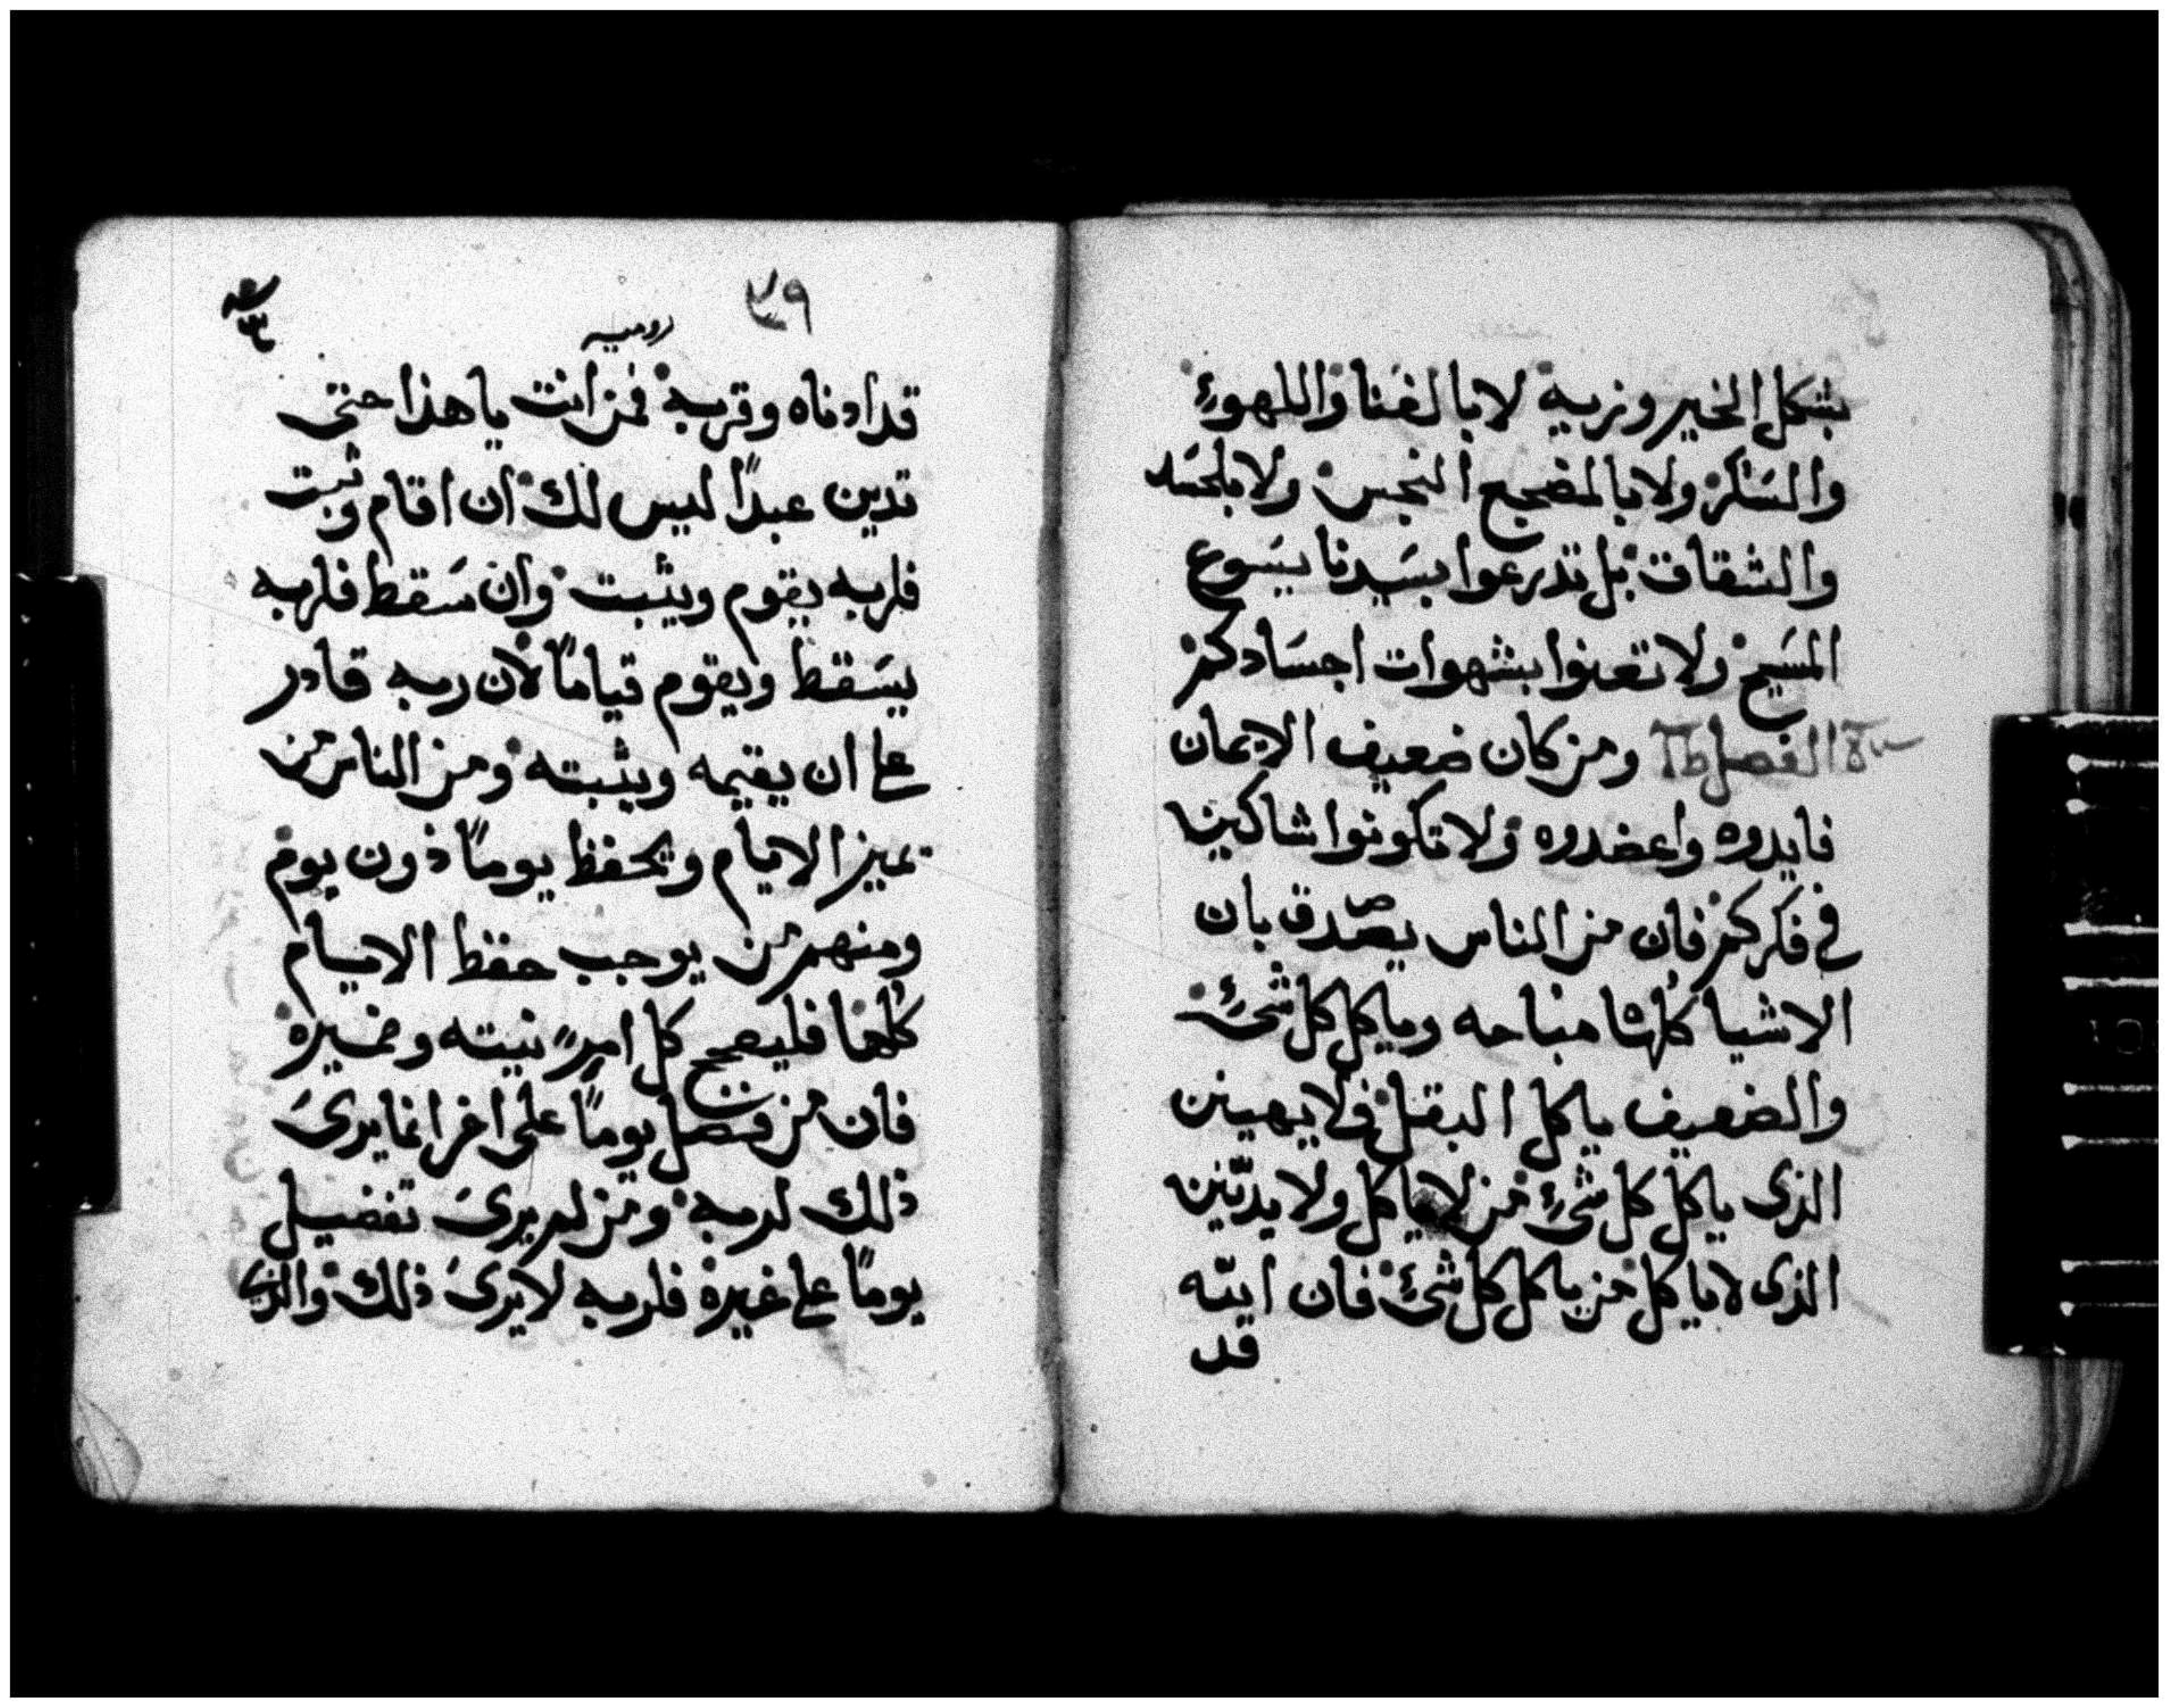 بشكل الخير وزيه لا بالغنا واللهوء
والسكر ولا بالمضجع النجس ولا بالحسد
والشقاق بل تدرعوا بسيدنا يسوع
المسيح ولا تعنوا بشهوات اجسادكم
الفصل ومن كان ضعيف الايمان
فايدوه واعضدوه ولا تكونوا شاكين
في فكركم فان من الناس يصدق بان
الاشيا كلها مباحه وياكل كل شيء
والضعيف ياكل البقل فلا يهينن
الذى ياكل كل شيء من لا ياكل ولا يدينن
الذى لا ياكل من ياكل كل شيء فان الله
قد
٣٩
روميه
قد ادناه وقربه فمن انت يا هذا حتى
تدين عبدًا ليس لك ان اقام وثبت
فلربه يقوم ويثبت وان سقط فلربه
يسقط ويقوم قيامًا لان ربه قادر
على ان يقيمه ويثبته ومن الناس من
يميز الايام ويحفظ يومًا دون يوم
ومنهم من يوجب حفظ الايام
كلها فليصحح كل امرء نيته وضميره
فان من فضل يومًا على اخر انما يرى
ذلك لربه ومن لم يرى تفضيل
يومًا على غيره فلربه لا يرى ذلك والذي